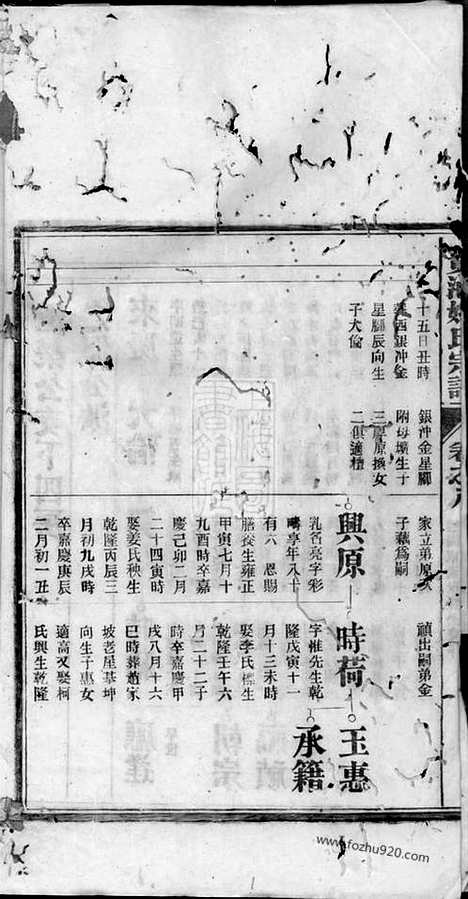 十五日丑時
西銀冲金
星腳辰向生
子大倫
銀冲金星腳
附母壙生子
三原換女
二俱適檀
家立弟原
子為嗣
禎出嗣弟金
興原
乳名亮字彩
疇享年八十
有六 恩賜
膳養生雍正
甲寅七月十
九酉時卒嘉
慶己卯二月
二十四寅時
娶姜氏秧生
乾隆丙辰三
月初九戌時
卒嘉慶庚辰
二月初一丑
時荷
字惟先生乾
隆戊寅十一
月十三未時
娶李氏標生
乾隆壬午六
月二十二子
時卒嘉慶甲
戌八月十六
巳時葬趙家
坡老星基坤
向生子惠女
適高又娶柯
氏興生乾隆
玉惠
承籍
www.fozhu920.com